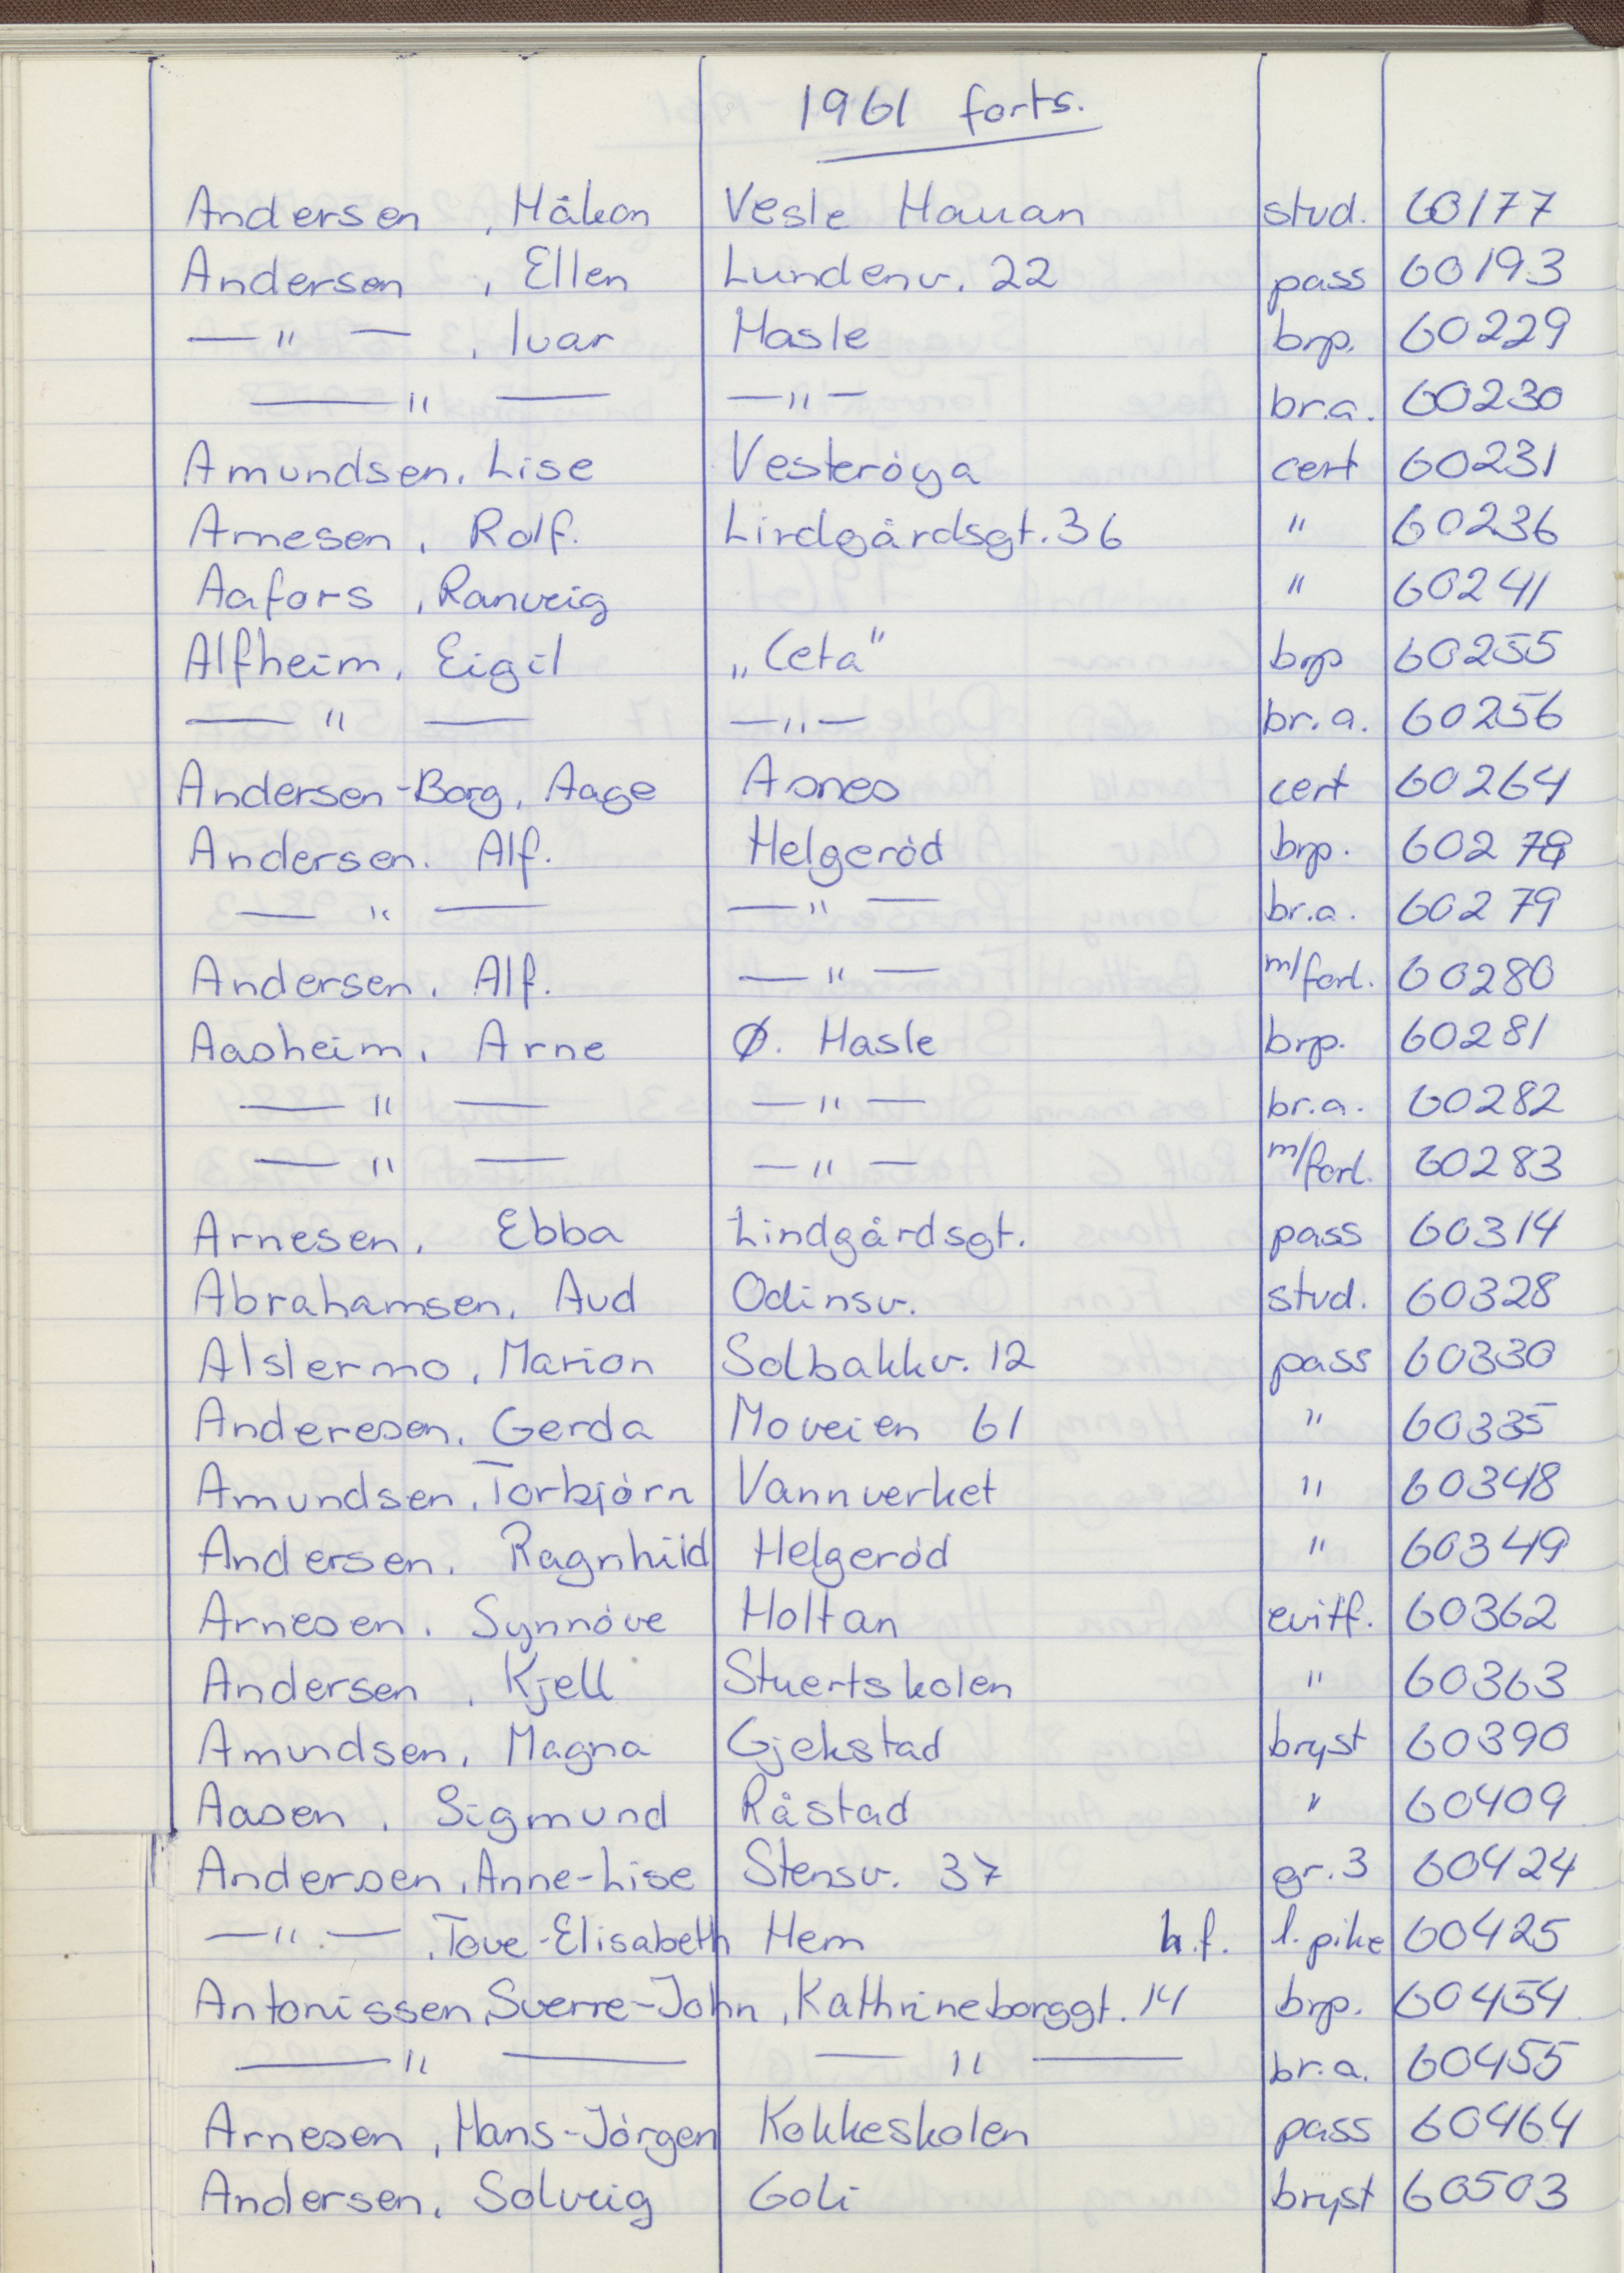 1961 forts.
Andersen , Håkon Vesle Hauan stud. 60177
Andersen , Ellen Lundenv. 22 pass 60193
— " — , Ivar Hasle brp. 60229
— " — — " — br.a. 60230
Amundsen, Lise Vesteröya cert 60231
Arnesen, Rolf. Lindgårdsgt. 36 " 60236
Aafors , Ranveig " 60241
Alfheim, Eigil „Ceta" brp 60255
— " — — " — br.a. 60256
Andersen-Borg, Aage Asnes cert 60264
Andersen. Alf. Helgeröd brp. 60278
— " — — " — br.a. 60279
Andersen, Alf. — " — m/forl. 60280
Aasheim, Arne Ø. Hasle brp. 60281
— " — — " — br.a. 60282
— " — — " — m/forl. 60283
Arnesen, Ebba Lindgårdsgt. pass 60314
Abrahamsen, Aud Odinsv. stud. 60328
Alslermo, Marion Solbakkv. 12 pass 60330
Anderesen, Gerda Moveien 61 " 60335
Amundsen, Torbjörn Vannverket " 60348
Andersen, Ragnhild Helgeröd " 60349
Arnesen, Synnöve Holtan evitf. 60362
Andersen , Kjell Stuertskolen " 60363
Amundsen, Magna Gjekstad bryst 60390
Aasen , Sigmund Råstad " 60409
Andersen, Anne-Lise Stensv. 37 gr. 3 60424
— " — , Tove-Elisabeth Hem h.f. l. pike 60425
Antonissen, Sverre-John, Kathrineborggt. 14 brp. 60454
— " — — " — br.a. 60455
Arnesen , Hans-Jörgen Kokkeskolen pass 60464
Andersen, Solveig Goli bryst 60503